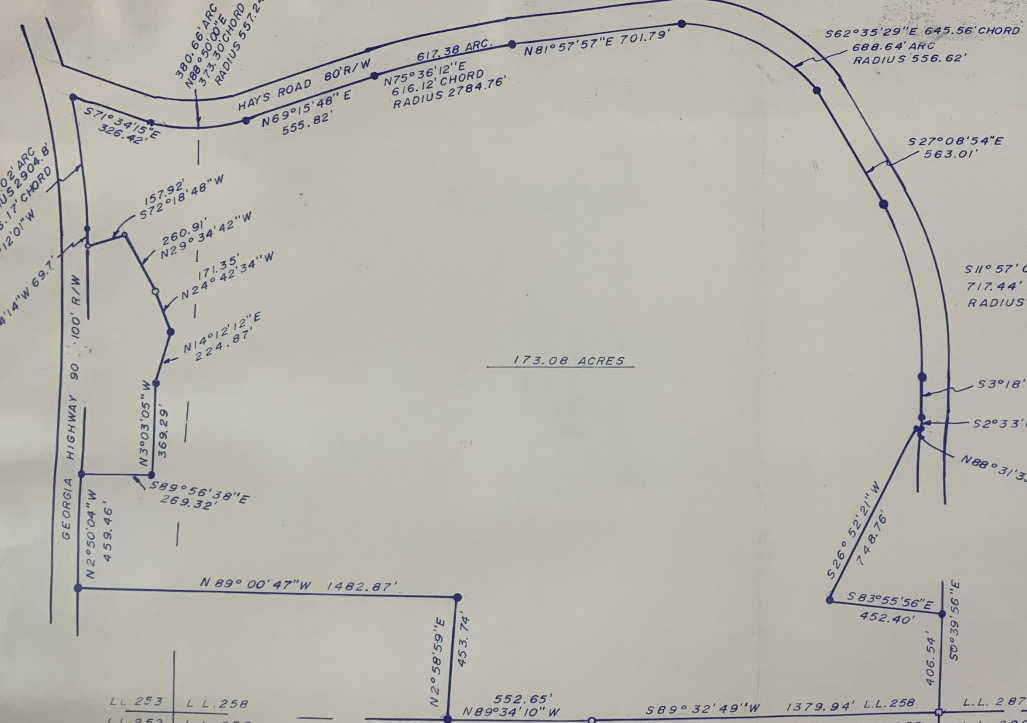 380.66' ARC
N88°50'00"E
373.30' CHORD
HAYS ROAD 80' R/W
617.38 ARC.
N75°36'12"E
616.12' CHORD
RADIUS 2784.76'
N81°57'57"E 701.79'
S62°35'29"E 645.56' CHORD
688.64' ARC
RADIUS 556.62'
S71°34'15"E
326.42'
N69°15'48" E
555.82'
S27°08'54"E
563.01'
157.92'
S72°18'48"W
260.91'
N29°34'42"W
171.35'
N24°42'34"W
N14°12'12"E
224.87'
S11°57'
717.44'
RADIUS
173.08 ACRES
GEORGIA HIGHWAY 90 100' R/W
N3°03'05"W
369.29'
S89°56'38"E
269.32'
N2°50'04"W
459.46'
S3°18'
S2°33'
N88°31'
S26°52'21"W
748.76'
N 89° 00'47"W 1482.87'
S83°55'56"E
452.40'
N2°58'59"E
453.74'
406.54'
S0°39'56"E
552.65'
N89°34'10"W
S89°32'49"W 1379.94' L.L.258
L.L. 287
LL 253 L L.258